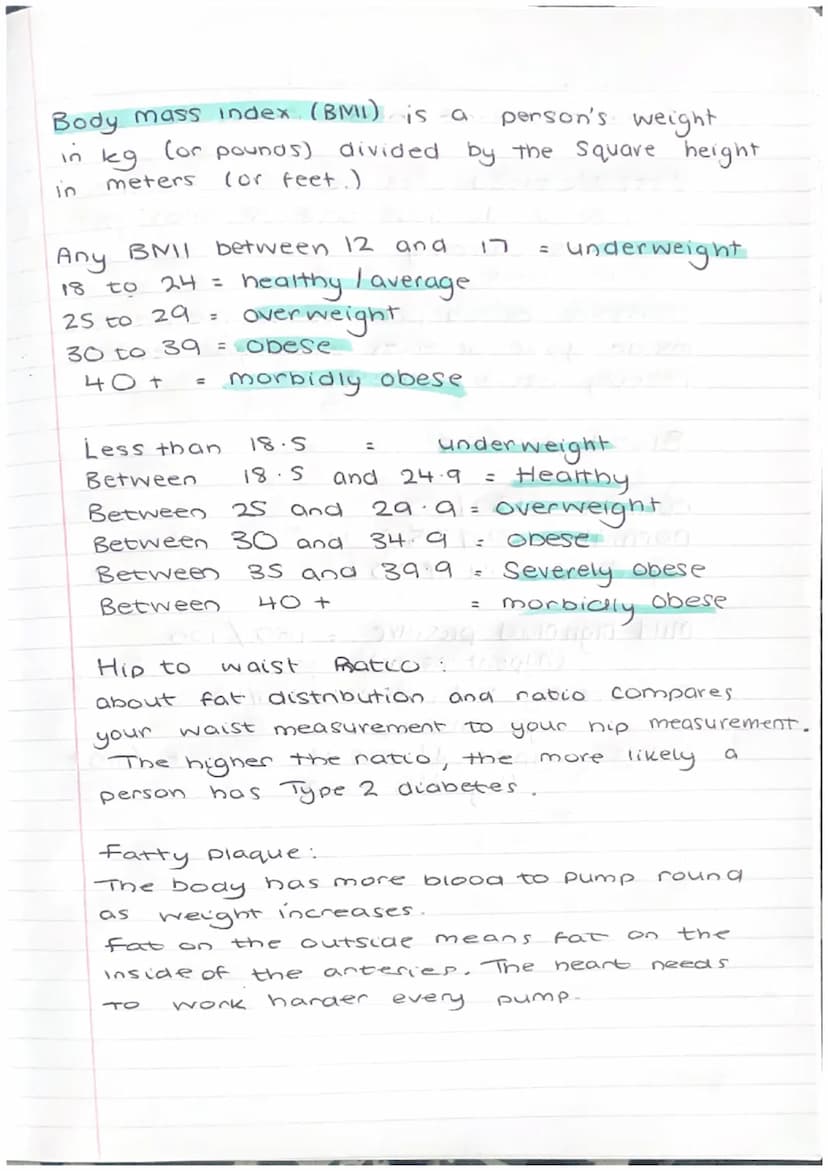 Body mass index (BMI) is a person's weight
in kg (or pounds) divided by the square height
in meters (or feet.)
Any BMI between 12 and 17 = underweight
18 to 24 = healthy / average
25 to 29 = overweight
30 to 39 = obese
40 + = morbidly obese
Less than 18.5 = underweight
Between 18.5 and 24.9 = Healthy
Between 25 and 29.9 = overweight
Between 30 and 34.9 = obese
Between 35 and 39.9 = Severely obese
Between 40 + = morbidly obese
Hip to waist Ratio :
about fat distribution and ratio compares
your waist measurement to your hip measurement.
The higher the ratio, the more likely a
person has Type 2 diabetes.
Fatty plaque:
The body has more blood to pump round
as weight increases.
Fat on the outside means fat on the
inside of the arteries. The heart needs
to work harder every pump.